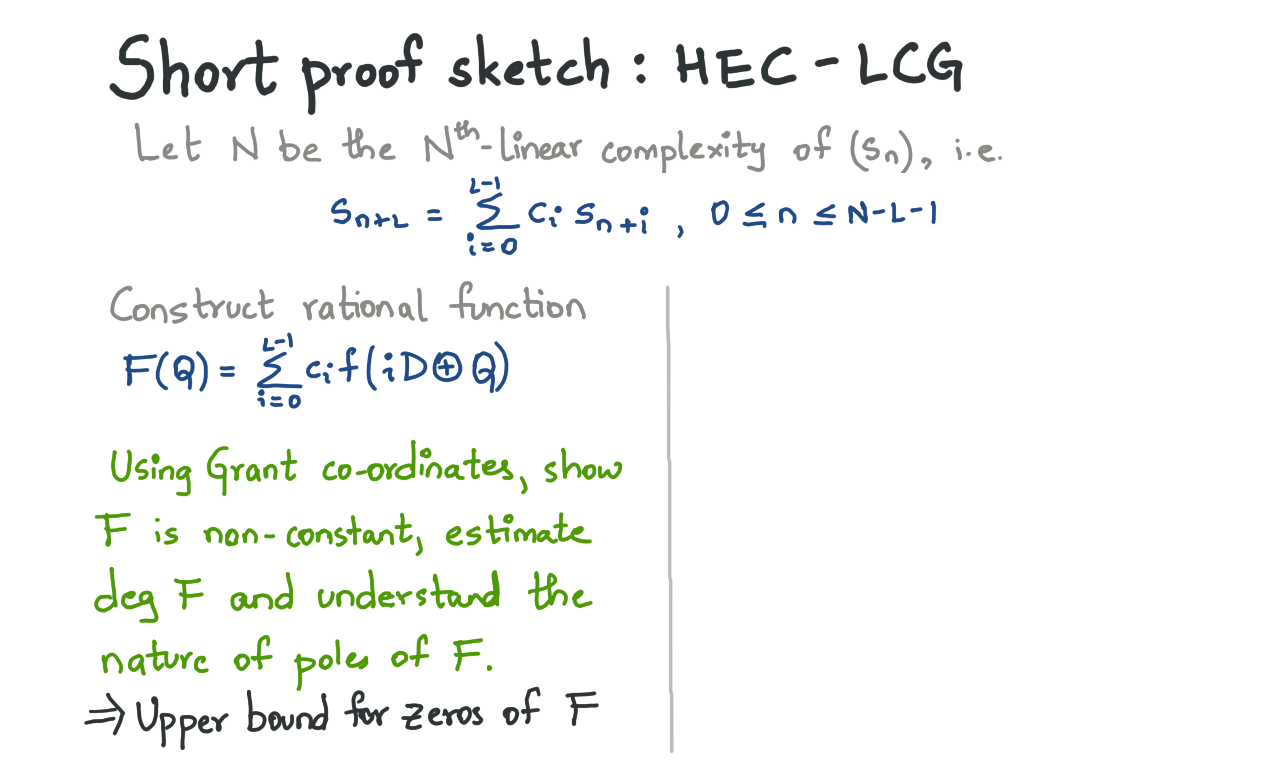 Short proof sketch : HEC - LCG
Let N be the Nᵗʰ-linear complexity of (Sₙ), i.e.
Sₙ₊L = ∑_{i=0}^{L-1} cᵢ Sₙ₊ᵢ , 0 ≤ n ≤ N-L-1
Construct rational function
F(Q) = ∑_{i=0}^{L-1} cᵢ f(iD⊕Q)
Using Grant co-ordinates, show
F is non-constant, estimate
deg F and understand the
nature of poles of F.
⇒ Upper bound for zeros of F